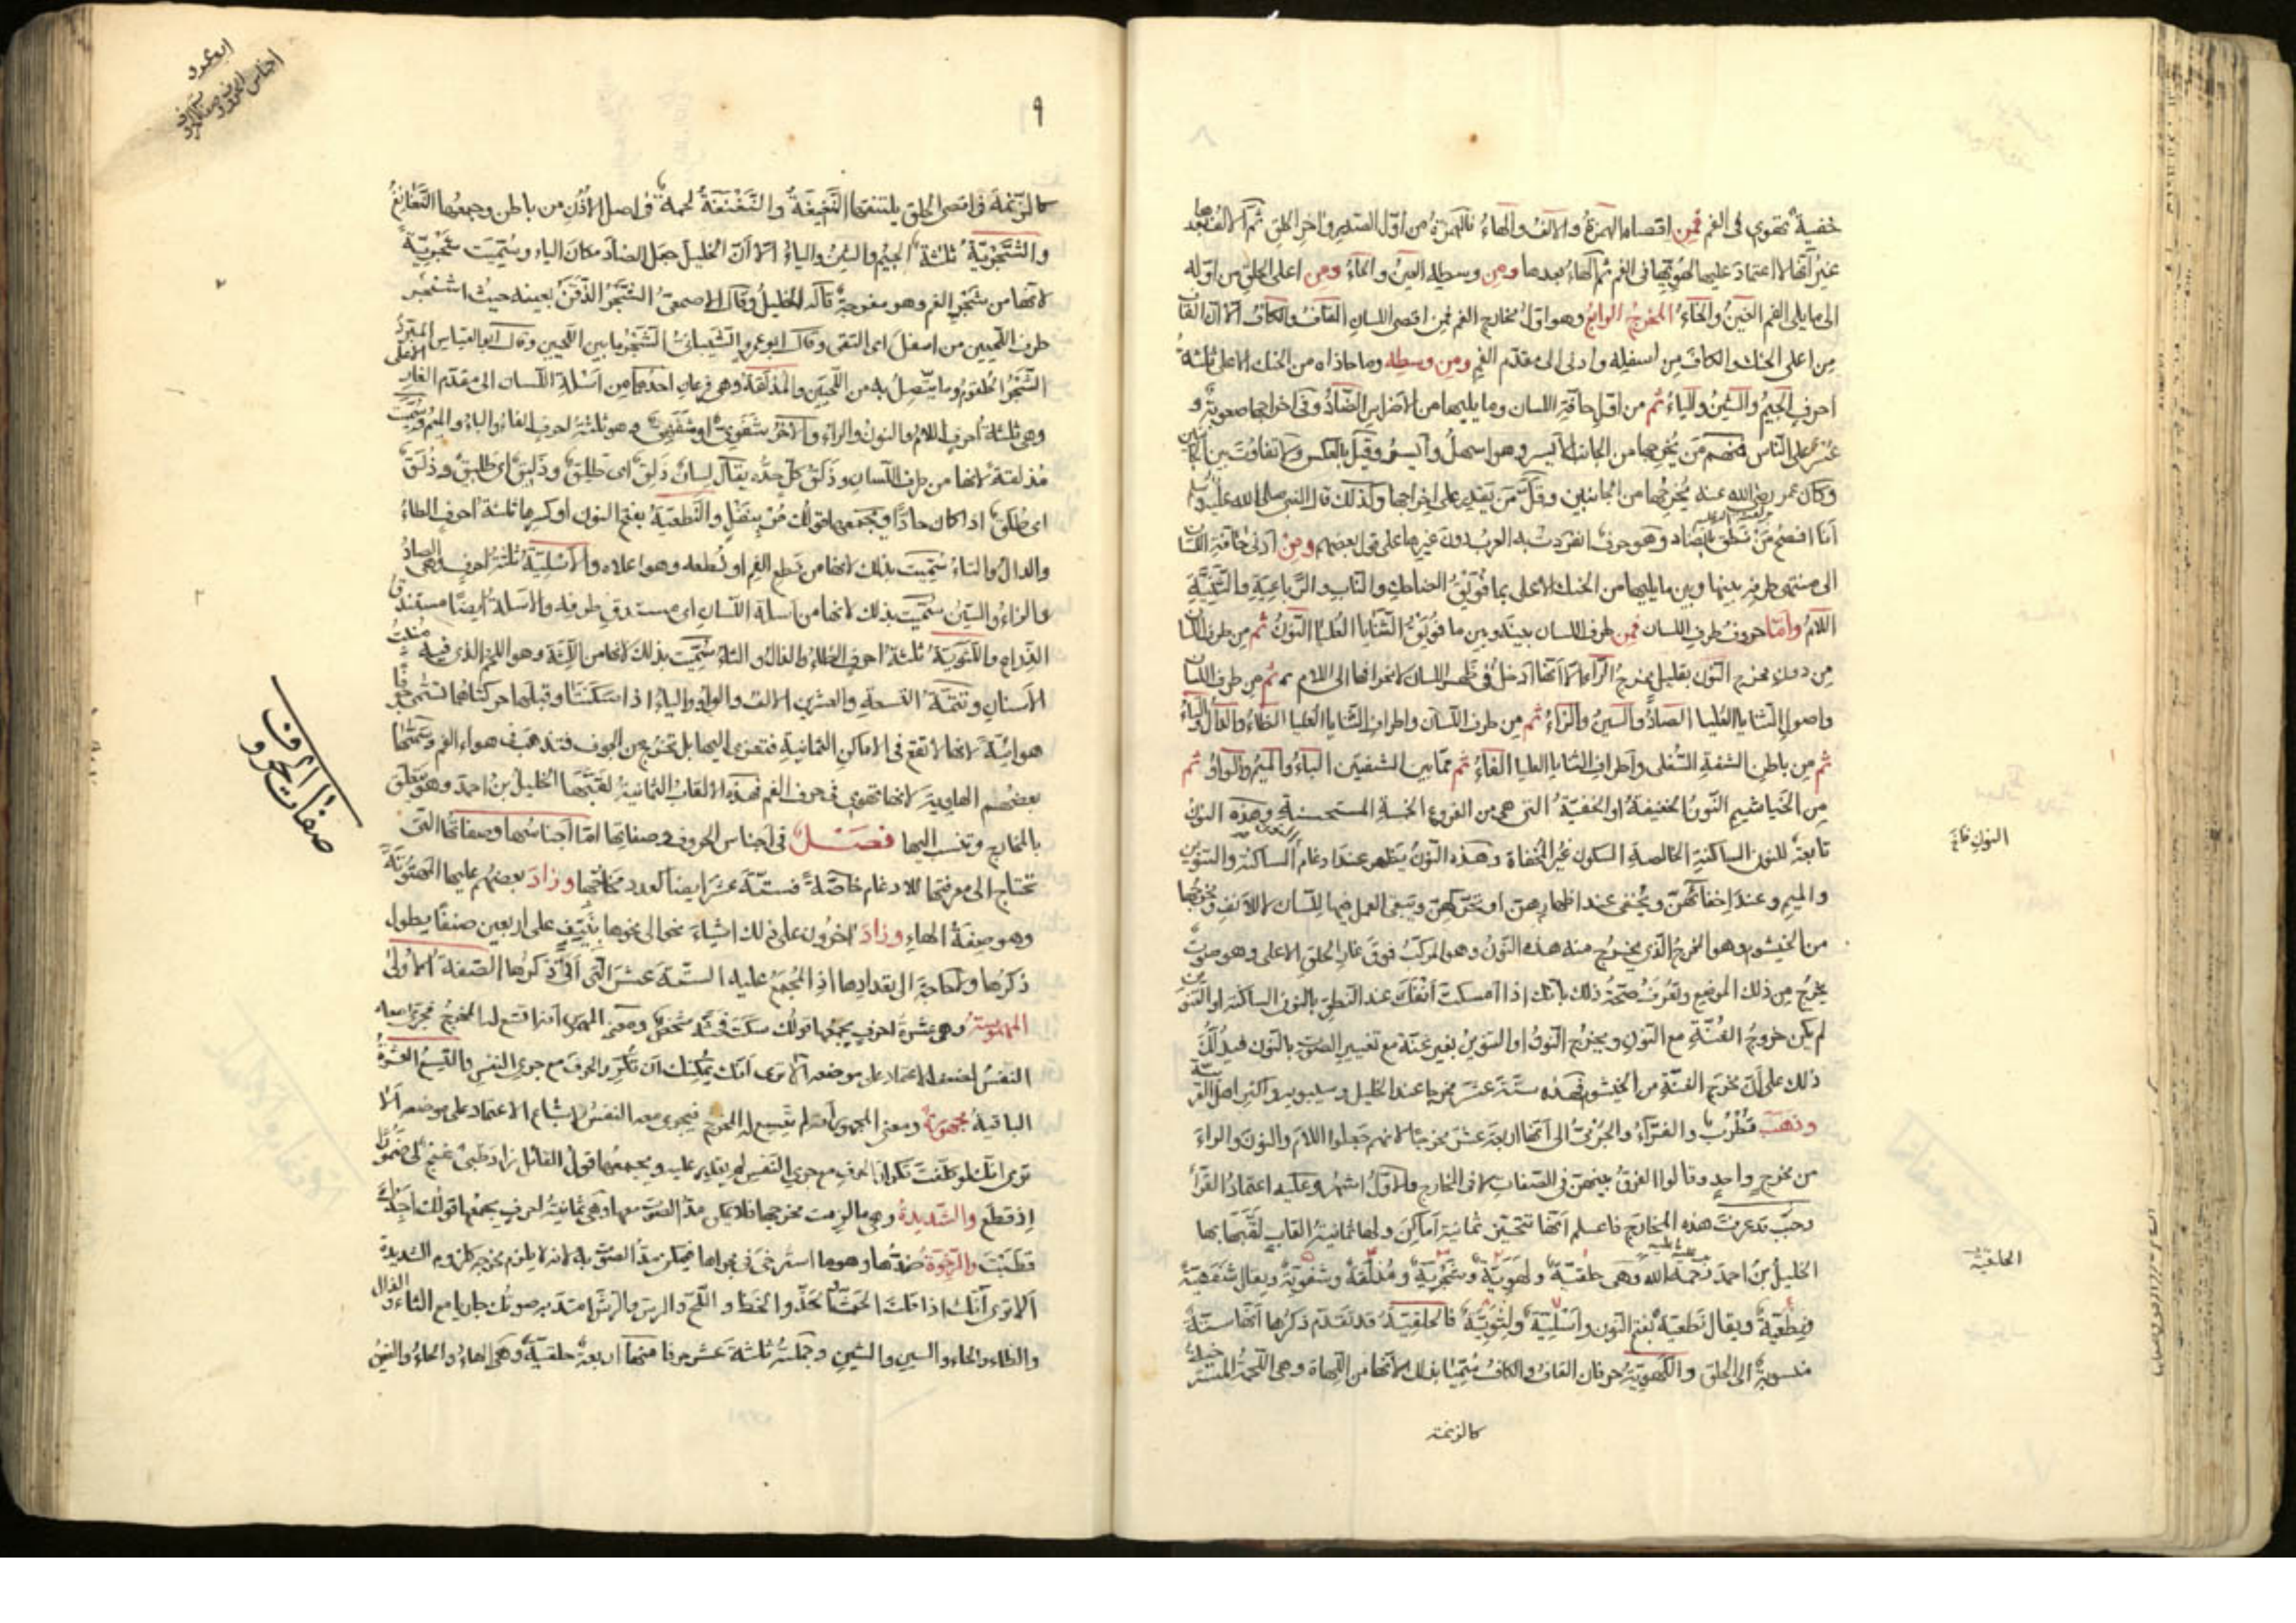 خفية تهوي في الفم فمن اقصاها الهمزة والالف والهاء فالهمزة من اول الصدر واخر الحلق ثم الالف بعدها
غير انها لا اعتماد عليها لهويها في الفم ثم الهاء بعدها ومن وسطه العين والحاء ومن اعلى الحلق من اوله
الى ما يلي الفم الغين والخاء المخرج الرابع وهو اول مخارج الفم فمن اقصى اللسان القاف والكاف الا ان القاف
من اعلى الحنك والكاف من اسفله وادنى الى مقدم الفم ومن وسطه وما حاذاه من الحنك الاعلى ثلثة
احرف الجيم والشين والياء ثم من اول حافة اللسان وما يليها من الاضراس الضاد وفي اخراجها صعوبة و
عسر على الناس فمنهم من يخرجها من الجانب الايسر وهو اسهل وايسر وقيل بالعكس ولا تفاوت بين الجانبين
وكان عمر رضي الله عنه يخرجها من الجانبين وقل من يقدر على اخراجها وكذلك قال النبي صلى الله عليه وسلم
انا افصح من نطق بالضاد وهو حرف انفردت به العرب دون غيرها على قول بعضهم ومن ادنى حافة اللسان
الى منتهى طرفه بينها وبين ما يليها من الحنك الاعلى بما فويق الضاحك والناب والرباعية والثنية
اللام واما حروف طرف اللسان فمن طرف اللسان بينه وبين ما فويق الثنايا العليا النون ثم من طرف اللسان
من دون مخرج النون بقليل مخرج الراء الا انها ادخل في ظهر اللسان لانحرافها الى اللام ثم من طرف اللسان
واصول الثنايا العليا الصاد والسين والزاء ثم من طرف اللسان واطراف الثنايا العليا الظاء والذال والثاء
ثم من باطن الشفة السفلى واطراف الثنايا العليا الفاء ثم مما بين الشفتين الباء والميم والواو ثم
من الخياشيم النون الخفيفة او الخفية التي هي من الفروع الخمسة المستحسنة وهذه النون
تابعة للنون الساكنة الخالصة السكون غير المخفاة وهذه النون يظهر عند ادغام الساكنة والتنوين
والميم وعند اخفائهن ويختفى عند اظهارهن او تحركهن ويبقى العمل فيها للسان لا للانف ومخرجها
من الخيشوم وهو المخرج الذي يخرج منه هذه النون وهو المركب فوق غار الحلق الاعلى وهو صوت
يخرج من ذلك الموضع وتعرف صحة ذلك بانك اذا امسكت انفك عند النطق بالنون الساكنة او التنوين
لم يكن خروج الغنة مع النون ويخرج النون او التنوين بغير غنة مع تغيير الصوت بالنون فيدلك
ذلك على ان مخرج الغنة من الخيشوم فهذه ستة عشر مخرجا عند الخليل وسيبويه واكثر اهل العربية
وذهب قطرب والفراء والجرمي الى انها اربعة عشر مخرجا لانهم جعلوا اللام والنون والراء
من مخرج واحد وقالوا الفرق بينهن في الصفات لا في المخارج والاول اشهر وعليه اعتماد القراء
وحيث قد عرفت هذه المخارج فاعلم انها تتحيز ثمانية اماكن ولها ثمانية القاب لقبها بها
الخليل بن احمد رحمة الله عليه وهي حلقية ولهوية وشجرية ومذلقة وشفوية ويقال شفهية
ونطعية ويقال نطعية بفتح النون واسلية ولثوية فالحلقية قد تقدم ذكرها انها ستة
منسوبة الى الحلق واللهوية حرفان القاف والكاف سميتا بذلك لانهما من اللهاة وهي اللحمة المسترخية
كالزنمة
النون
الحلقية
٩
كالزنمة في اقصى الحلق يلتنفها النغنغة والنغنغة لحمة في اصل الاذن من باطن وجمعها النغانغ
والشجرية ثلثة الجيم والشين والياء الا ان الخليل جعل الضاد مكان الياء وسميت شجرية
لانها من شجر الفم وهو مفرجه قاله الخليل وقال الاصمعي الشجر الذقن بعينه حيث اشتجر
طرف اللحيين من اسفل اى التقى وقال ابو عمرو الشيباني الشجر ما بين اللحيين وقال ابو العباس المبرد
الشجر الحلقوم وما يتصل به من اللحيين والمذلقة وهي فرعان احدهما من اسلة اللسان الى مقدم الغار الاعلى
وهي ثلثة احرف اللام والنون والراء والاخر شفوي او شفهي وهو ثلثة احرف الفاء والباء والميم وسميت
مذلقة لانها من طرف اللسان وذلق كل حده يقال لسان ذلق اى طلق وذليق اى طليق وذلق
اى طلق اذا كان حادا ويجمعها قولك مر بنفل والنطعية بفتح النون او كسرها ثلثة احرف الطاء
والدال والتاء سميت بذلك لانها من نطع الفم او نطعه وهو اعلاه والاسلية ثلثة احرف وهي الصاد
والزاء والسين سميت بذلك لانها من اسلة اللسان اى مستدق طرفه والاسلة ايضا مستدق
الذراع واللثوية ثلثة احرف الظاء والذال والثاء سميت بذلك لانها من اللثة وهو اللحم الذي فيه منبت
الاسنان وتتمة التسعة والعشرين الالف والواو والياء اذا سكنتا وقبلهما حركتاهما تسمى جوفا
هوائية لانها لا تقع في الاماكن الثمانية فتعزى اليها بل تخرج من الجوف فتذهب في هواء الفم وسمتها
بعضهم الهاوية لانها تهوي في جوف الفم فهذه الالقاب الثمانية لقبها الخليل بن احمد وهو يتعلق
بالمخارج وتنسب اليها فصل في اجناس الحروف وصفاتها اما اجناسها وصفاتها التي
تحتاج الى معرفتها للادغام خاصة فستة عشر ايضا لعدد مخارجها وزاد بعضهم عليها المهتوتة
وهو صفة الهاء وزاد اخرون على ذلك اشياء نحو الى نحوها بنيف على اربعين صنفا يطول
ذكرها ولا حاجة الى تعدادها اذ المجمع عليه الستة عشر التي اتى ذكرها الصفة الاولى
المهموسة وهي عشرة احرف يجمعها قولك سكت فحثه شخص ومعنى المهموس انه اتسع له المخرج فجرى معه
النفس لضعف الاعتماد على موضعه الا ترى انك يمكنك ان تكرر الحرف مع جري النفس والتسع العشرة
الباقية مجهورة ومعنى المجهور انه لم يتسع له المخرج فيجرى معه النفس لاشباع الاعتماد على موضعه الا
ترى انك لو كلفت تكرار الحرف مع جري النفس لم يقدر عليه ويجمعها قول القائل زاد ظبي غنج لي ضمورا
اذ قطع والشديدة وهي ما لزمت مخرجها فلا يمكن مد الصوت معها وهي ثمانية احرف يجمعها قولك اجدك
قطبت والرخوة ضدها وهو ما استرخى في مجراها فيمكن مد الصوت بها لانه لا يلزم مخرجه كلزوم الشديدة
الا ترى انك اذا قلت الحث الحذ والحظ و اللح والرس والرش امتد به صوتك جاريا مع الثاء والذال
والظاء والحاء والسين والشين وجملته ثلثة عشر حرفا منها اربعة حلقية وهي الهاء والحاء والغين
صفات الحروف
اجناس الحروف وصفات الحروف